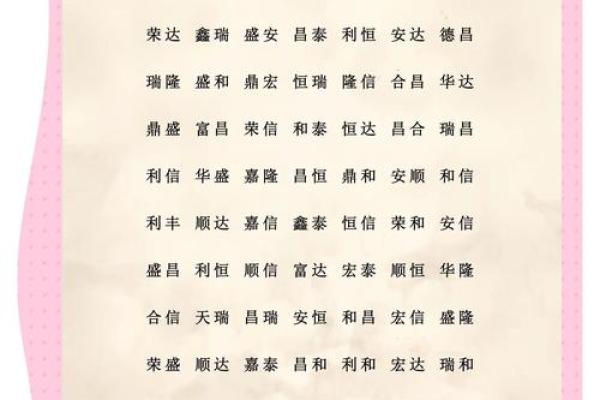 荣达 鑫瑞 盛安 昌泰 利恒 安达 德昌
瑞隆 盛和 鼎宏 恒瑞 隆信 合昌 华达
鼎盛 富昌 荣信 和泰 恒达 昌合 瑞昌
利信 华盛 嘉隆 昌恒 鼎和 安顺 和信
利丰 顺达 嘉信 鑫泰 恒信 荣和 安信
盛昌 利恒 顺信 富达 宏泰 顺恒 华隆
合信 天瑞 昌瑞 安恒 和昌 宏信 盛隆
荣盛 顺达 嘉泰 昌和 利和 宏达 瑞和